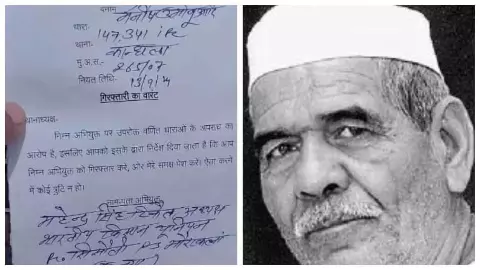 बनाम
धारा-
147,341 IPC
थाना-
कान्धला
मु.अ.स.- 265/07
नियत तिथि-
गिरफ्तारी का वारंट
थानाध्यक्ष,
निम्न अभियुक्त पर उपरोक्त वर्णित धाराओं के अपराध का
आरोप है, इसलिए आपको इसके द्वारा निर्देश दिया जाता है कि आप
निम्न अभियुक्त को गिरफ्तार करे, और मेरे समक्ष पेश करे। ऐसा करने
में कोई त्रुटि न हो।
महेन्द्र सिंह टिकैत अध्यक्ष
भारतीय किसान यूनियन
सिसौली PS भौराकलां